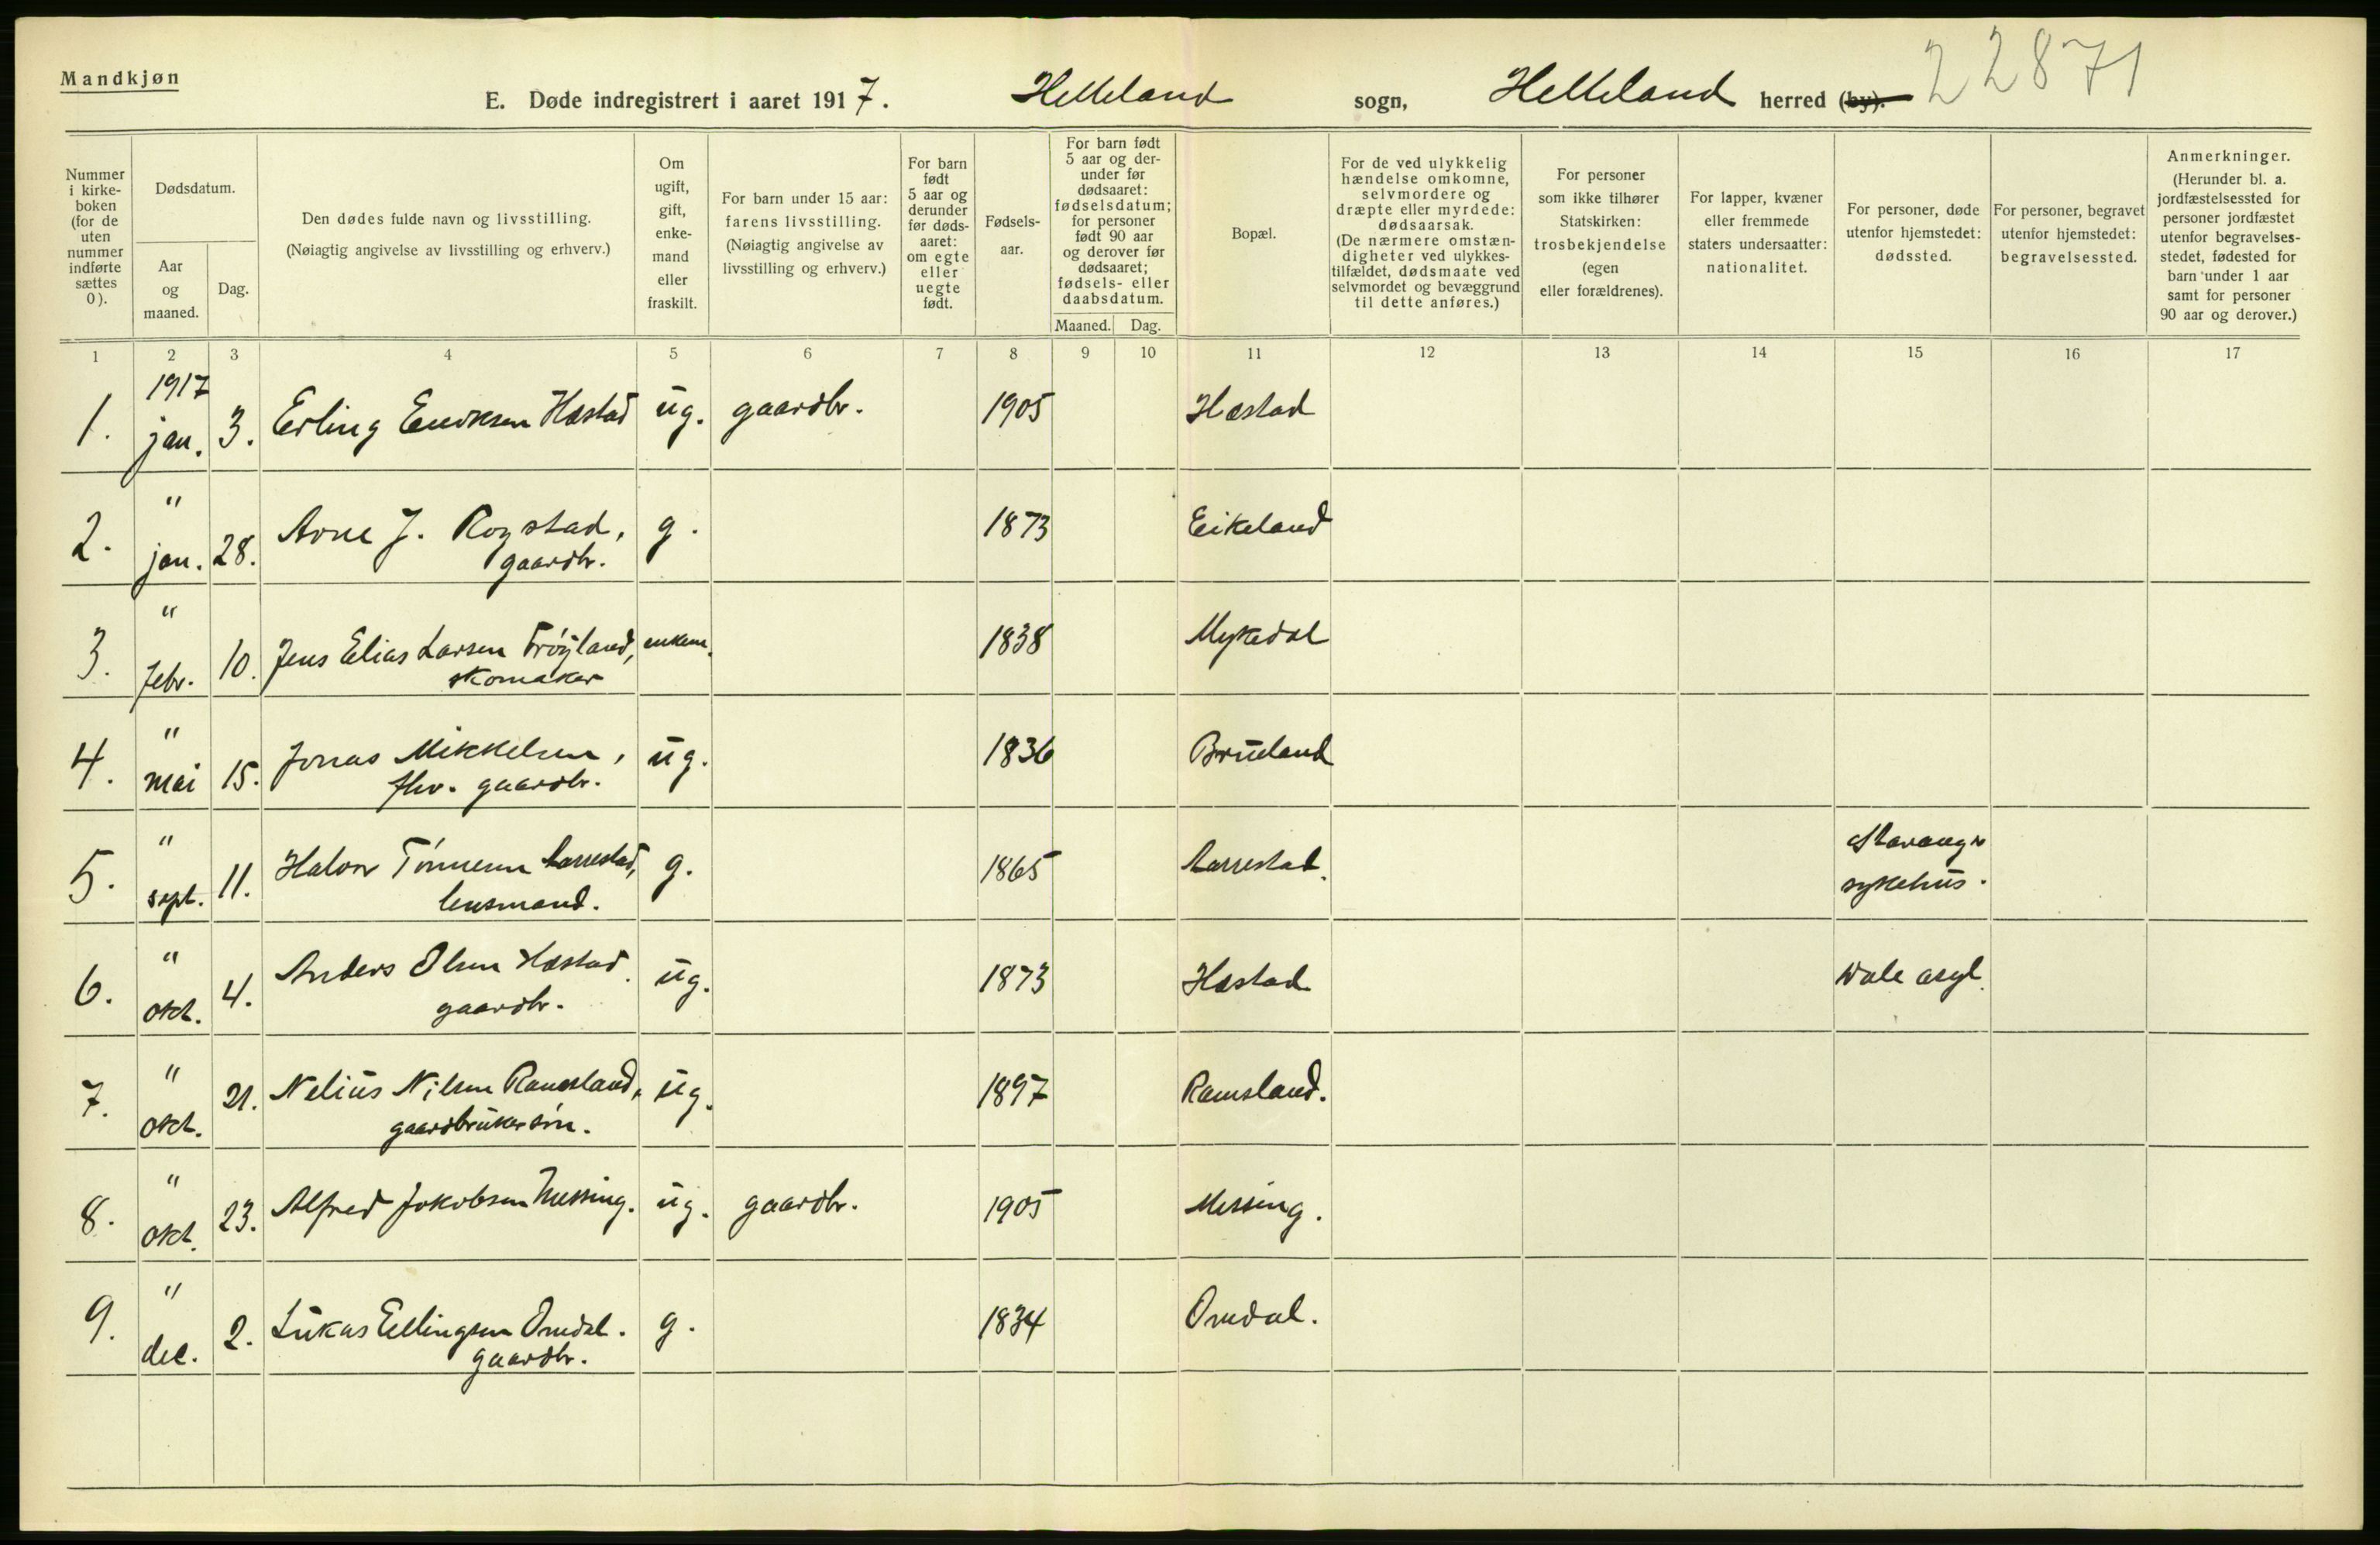 Mandkjøn
22871
E. Døde indregistrert i aaret 1917. Helleland sogn, Helleland herred (by).
Nummer i kirke- boken (for de uten nummer indførte sættes 0).
Dødsdatum.
Aar og maaned.
Dag.
Den dødes fulde navn og livsstilling.
(Nøiagtig angivelse av livsstilling og erhverv.)
Om ugift, gift, enke- mand eller fraskilt.
For barn under 15 aar: farens livsstilling. (Nøiagtig angivelse av livsstilling og erhverv.)
For barn født 5 aar og derunder før døds- aaret: om egte eller uegte født.
Fødsels- aar.
For barn født 5 aar og der- under før dødsaaret: fødselsdatum; for personer født 90 aar og derover før dødsaaret; fødsels- eller daabsdatum.
Maaned. Dag.
Bopæl.
For de ved ulykkelig hændelse omkomne, selvmordere og dræpte eller myrdede: dødsaarsak. (De nærmere omstæn- digheter ved ulykkes- tilfældet, dødsmaate ved selvmordet og bevæggrund til dette anføres.)
For personer som ikke tilhører Statskirken: trosbekjendelse (egen eller forældrenes).
For lapper, kvæner eller fremmede staters undersaatter: nationalitet.
For personer, døde utenfor hjemstedet: dødssted.
For personer, begravet utenfor hjemstedet: begravelsessted.
Anmerkninger. (Herunder bl. a. jordfæstelsessted for personer jordfæstet utenfor begravelses- stedet, fødested for barn under 1 aar samt for personer 90 aar og derover.)
1 2 3 4 5 6 7 8 9 10 11 12 13 14 15 16 17
1917
1. jan. 3. Erling Eriksen Hæstad ug. gaardbr. 1905 Hæstad
"
2. jan. 28. Arne J. Rogstad, g. 1873 Eikeland
gaardbr.
"
3. febr. 10. Jens Elias Larsen Trøgland, enkem. 1838 Mykedal
skomaker
"
4. mai 15. Jonas Mikkelsen, ug. 1836 Brueland
fhv. gaardbr.
"
5. sept. 11. Halvor Tønnesen Aarrestad, g. 1865 Aarrestad. Stavanger
lensmand. sykehus.
"
6. okt. 4. Anders Olsen Hæstad. ug. 1873 Hæstad Dale asyl.
gaardbr.
"
7. okt. 21. Nelius Nilsen Ramsland, ug. 1897 Ramsland.
gaardbrukersøn.
"
8. okt. 23. Alfred Jakobsen Messing. ug. gaardbr. 1905 Messing.
"
9. dec. 2. Lukas Ellingsen Omdal. g. 1834 Omdal.
gaardbr.